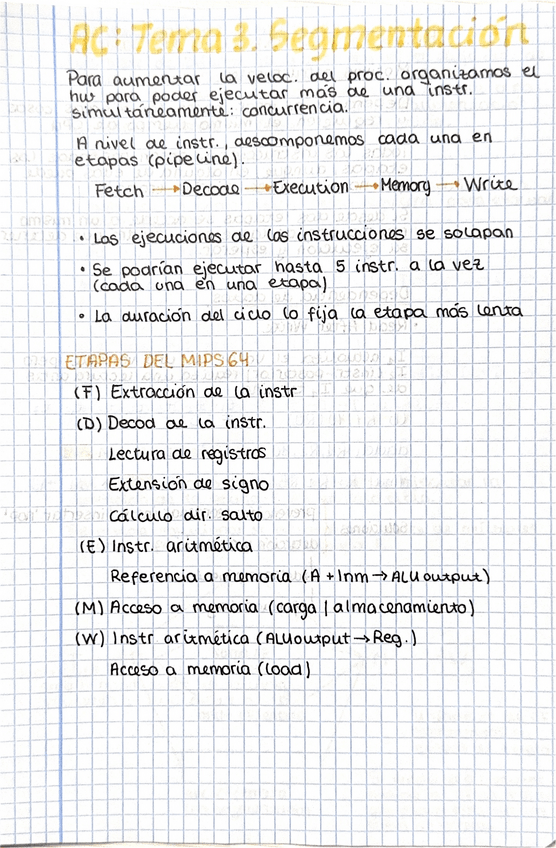 AC: Tema 3. Segmentación
Para aumentar la veloc. del proc. organizamos el
hw para poder ejecutar más de una instr.
simultáneamente: concurrencia.
A nivel de instr., descomponemos cada una en
etapas (pipeline).
Fetch → Decode → Execution → Memory → Write
• Las ejecuciones de las instrucciones se solapan
• Se podrían ejecutar hasta 5 instr. a la vez
(cada una en una etapa)
• La duración del ciclo lo fija la etapa más lenta
ETAPAS DEL MIPS64
(F) Extracción de la instr
(D) Decod de la instr.
Lectura de registros
Extensión de signo
Cálculo dir. salto
(E) Instr. aritmética
Referencia a memoria (A + Inm → ALUoutput)
(M) Acceso a memoria (carga / almacenamiento)
(W) Instr aritmética (ALUoutput → Reg.)
Acceso a memoria (load)